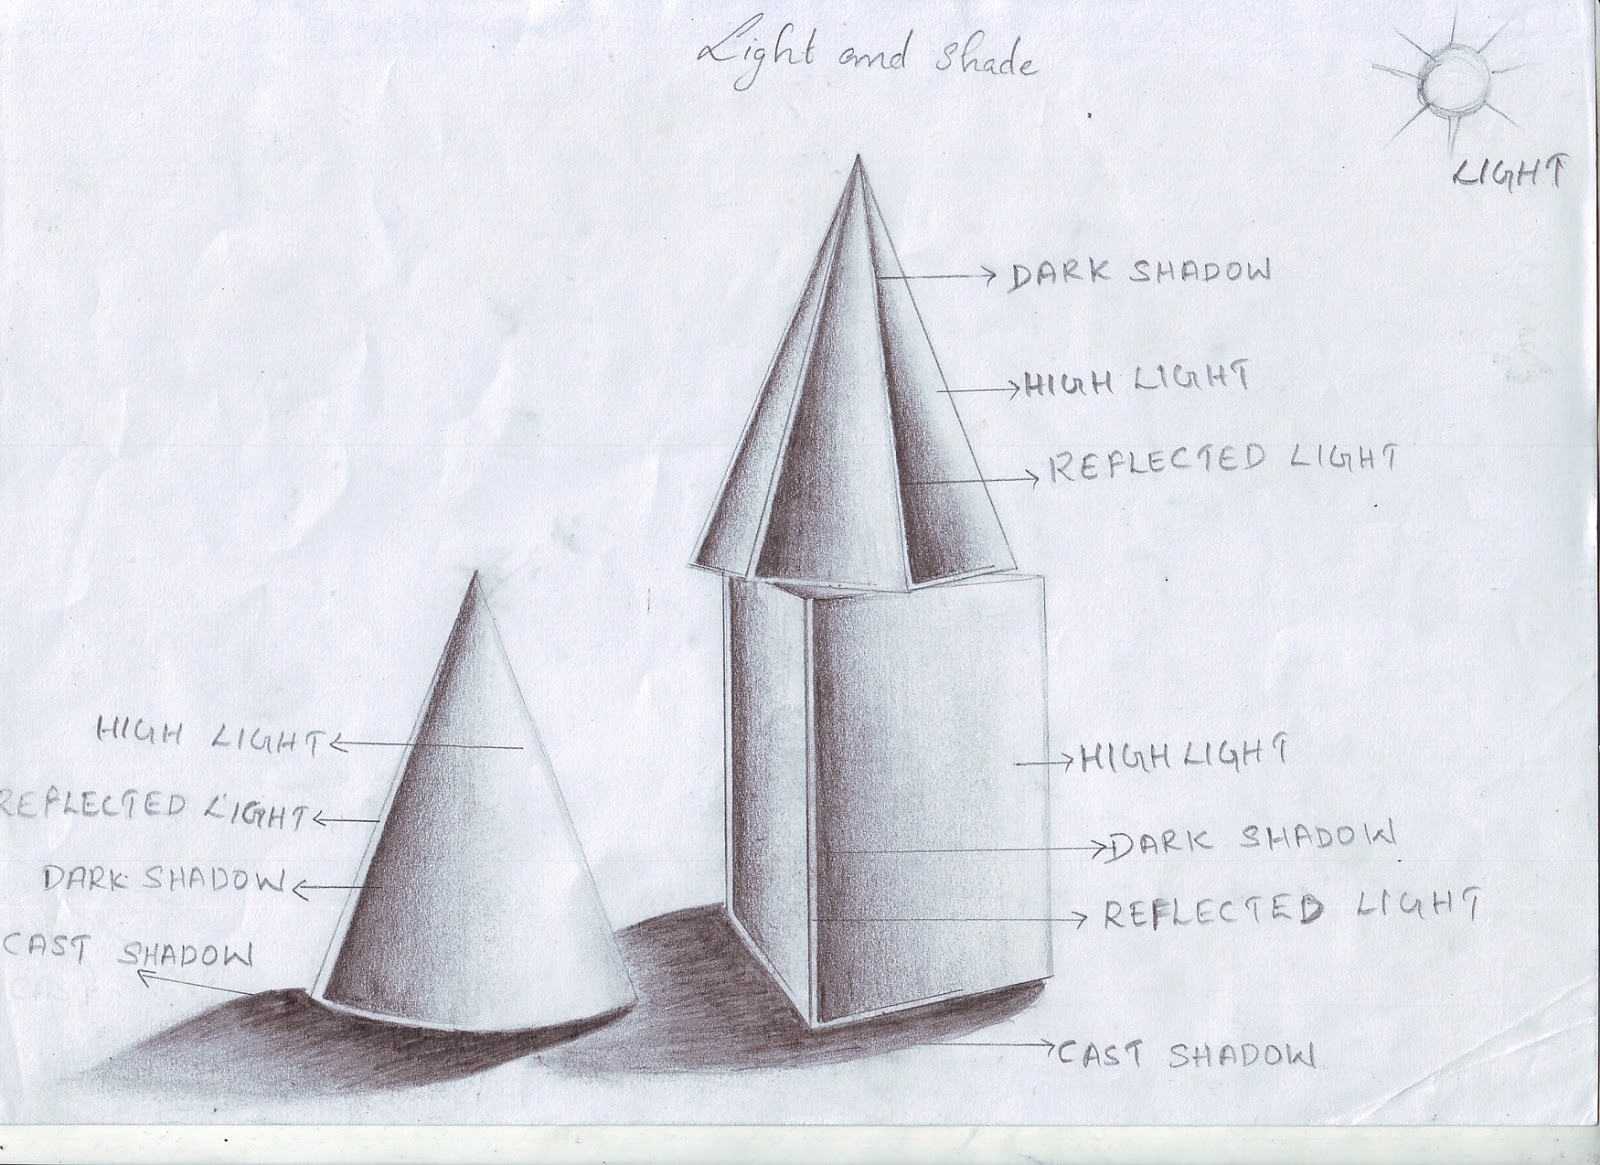 Light and shade
LIGHT
DARK SHADOW
HIGH LIGHT
REFLECTED LIGHT
HIGH LIGHT
REFLECTED LIGHT
DARK SHADOW
CAST SHADOW
HIGH LIGHT
DARK SHADOW
REFLECTED LIGHT
CAST SHADOW